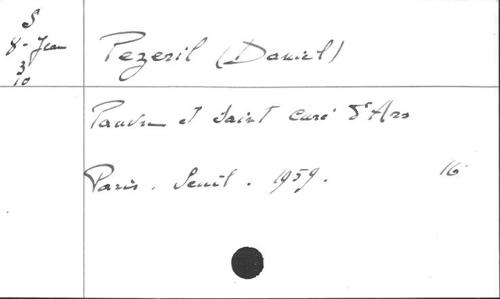 S
8 - Jean
3
10
Pezeril (Daniel)
Pauvre et saint curé d'Ars
Paris. Seuil. 1959. 16